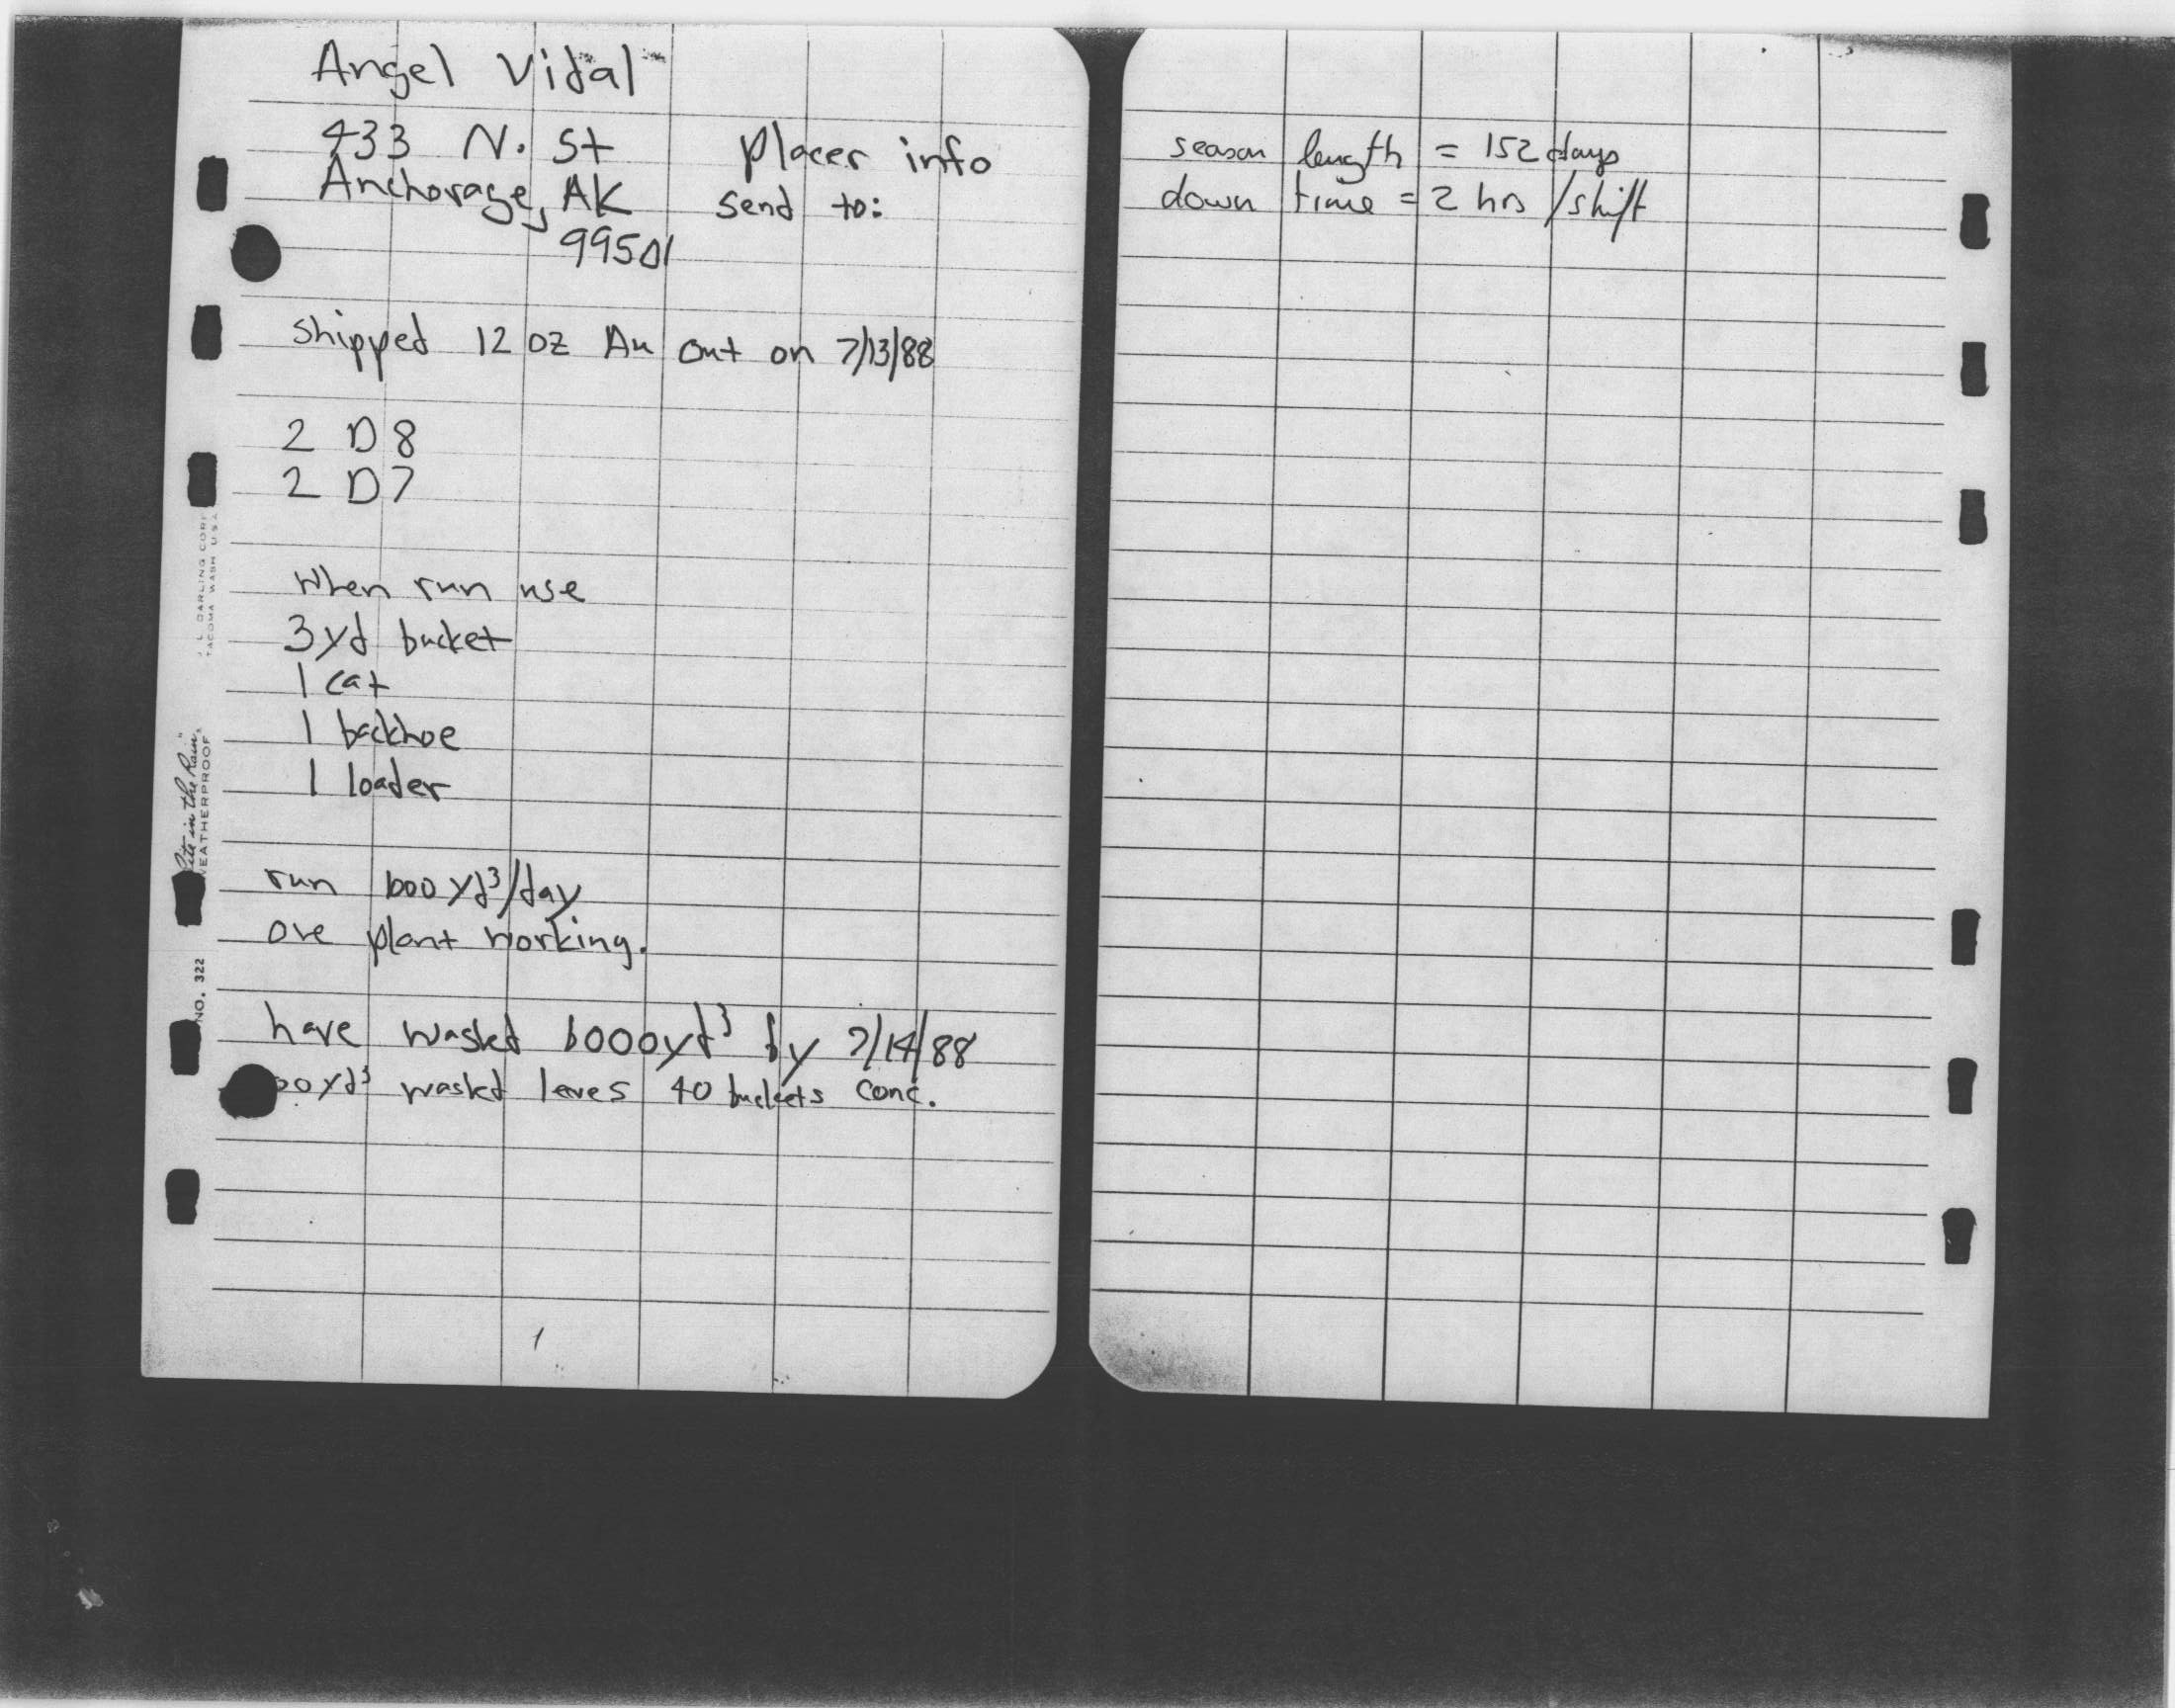 Angel Vidal
433 N. St placer info
Anchorage, AK send to:
99501
shipped 12 oz Au out on 7/13/88
2 D8
2 D7
when run use
3 yd bucket
1 cat
1 backhoe
1 loader
run 600 yd³/day
one plant working.
have washed 6000 yd³ by 7/14/88
00 yd³ washed leaves 40 buckets conc.
1
J. L. DARLING CORP
TACOMA WASH U.S.A.
"Rite in the Rain"
WEATHERPROOF
NO. 322
season length = 152 days
down time = 2 hrs / shift